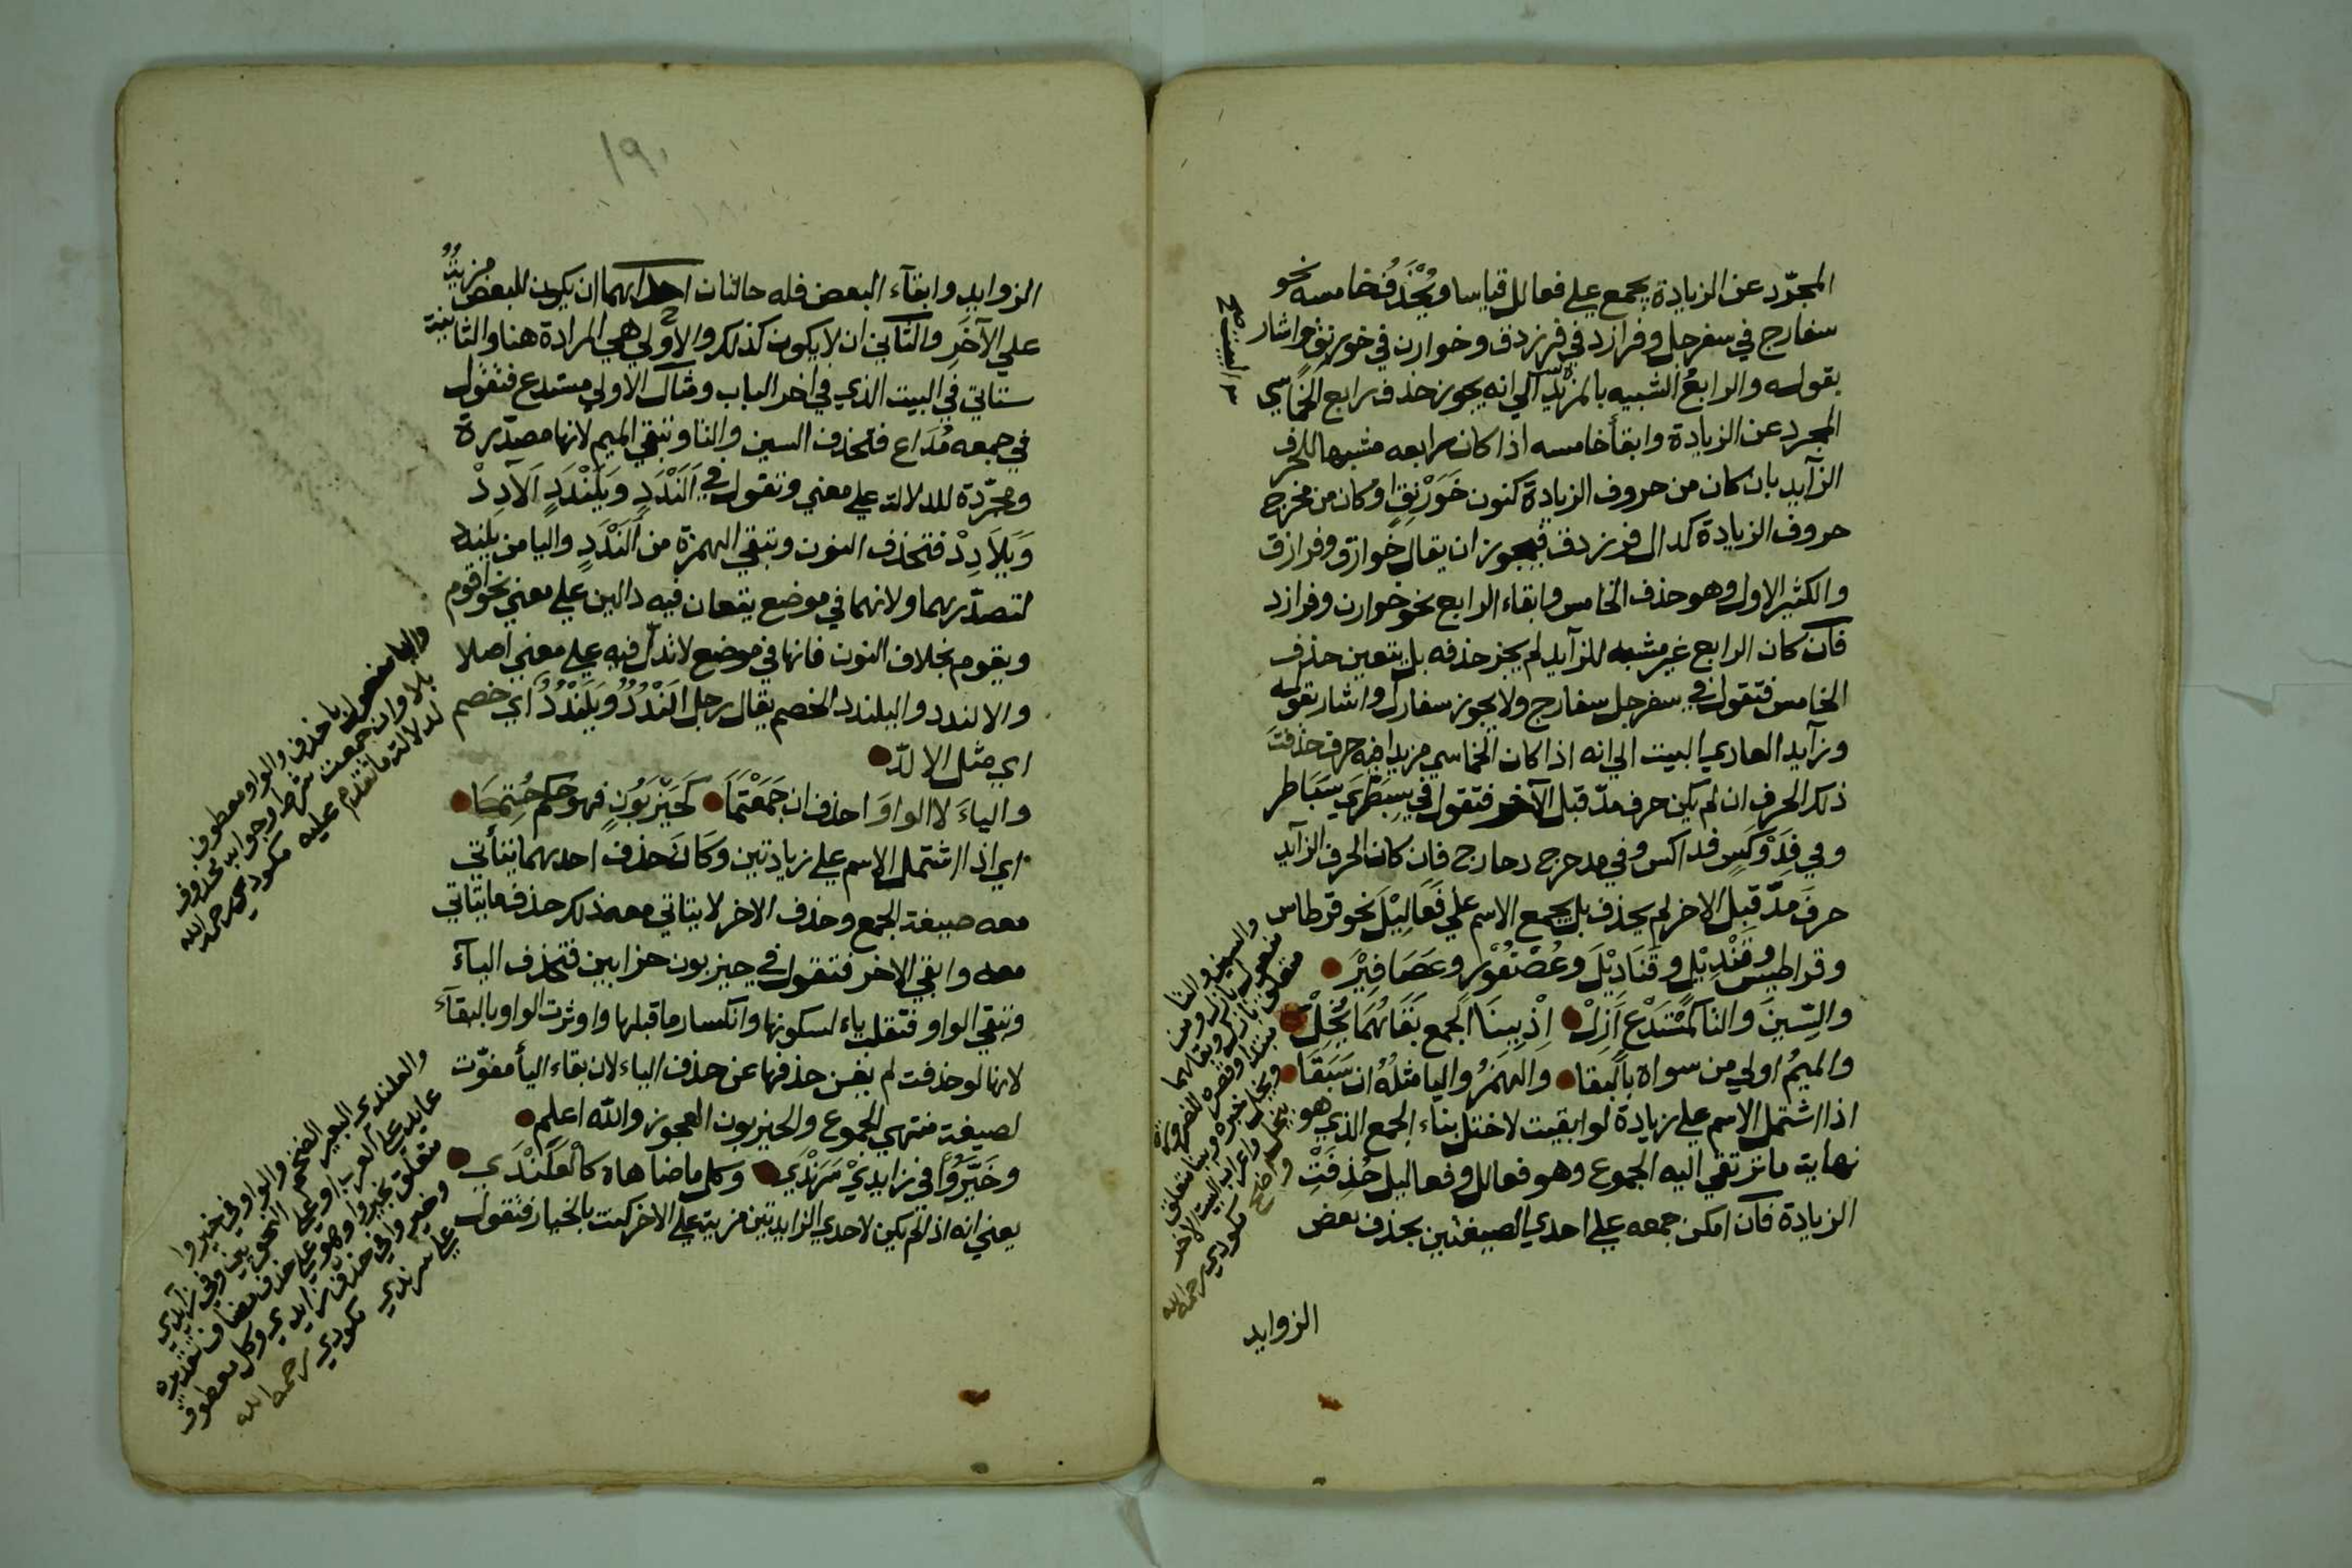 المجرّد عن الزيادة يجمع علي فعالل قياسا ويُحْذَفُ خامسه نحو
سفارج في سفرجل وفرازد في فرزدق وخوارن في خورنق واشار
بقوله والرابعُ الشبيه بالمزيد الي انه يجوز حذف رابع الخماسي
المجرد عن الزيادة وابقاء خامسه اذا كان رابعه مشبها للحرف
الزآيد بان كان من حروف الزيادة كنون خَوَرْنَقٍ او كان من مخرج
حروف الزيادة كدال فرزدق فيجوز ان يقال خوارق وفرازق
والكثير الاول وهو حذف الخامس وابقاء الرابع نحو خوارن وفرازد
فان كان الرابع غير مشبه للزآيد لم يجز حذفه بل يتعين حذف
الخامس فتقول في سفرجل سفارج ولا يجوز سفارل واشار بقوله
وزآيد العادي البيت الي انه اذا كان الخماسي مزيدا فيه حرف حذفت
ذلك الحرف ان لم يكن حرف مدّ قبل الآخر فتقول في سِبَطْرَي سَبَاطر
وفي فِدَوْكَسٍ فداكس وفي مدحرج دحارج فان كان الحرف الزآيد
حرفَ مدّ قبل الاخر لم يحذف بل يجمع الاسم علي فَعَالِيْلَ نحو قرطاس
وقراطيس وقَنْدِيْلٍ وقَنَادِيْلَ وعُصْفُوْرٍ وعَصَافِيْرَ
والسِّينَ والتا كَمُسْتَدْعٍ أَزِلْ اِذْ بِبِنَا الجمع بَقَاهُمَا مُخِلّْ
والميمُ اولي من سواه بِالبقا والهمزُ واليا مثلُهُ ان سَبَقَا
اذا اشتمل الاسم علي زيادة لو ابقيت لاختل بناء الجمع الذي هو
نهاية ما ترتقي اليه الجموع وهو فعالل وفعاليل حُذِفَتْ
الزيادة فان امكن جمعه علي احدي الصيغتين بحذف بعض
والسين والتا
مفعول بازل ومن
متعلق بازل وبقاهما
مبتدا وقصره للضرورة
ومخل خبره وببنا متعلق
بمخل واعراب البيت الاخر
واضح مكودي رحمه الله
الزوايد
١٩٠
الزوايد وابقآء البعض فله حالتان احداهما ان يكون للبعض مزية
علي الآخَرِ والثاني ان لا يكون كذلك والاولي هي المرادة هنا والثانية
ستاتي في البيت الذي في اخر الباب ومثال الاولي مستدع فتقول
في جمعه مُدَاع فتحذف السين والتا وتبقي الميم لانها مصدّرة
ومجرّدة للدلالة علي معني وتقول في اَلَنْدَدٍ ويَلَنْدَدٍ اَلَادِدْ
وَيَلَادِدْ فتحذف النون وتبقي الهمزة من اَلَنْدَدٍ واليا من يلندد
لتصدّرهما ولانهما في موضع يقعان فيه دالين علي معني نحو اقوم
ويقوم بخلاف النون فانها في موضع لا تدلّ فيه علي معني اصلا
والالندد واليلندد الخصم يقال رجل اَلَنْدَدُ ويَلَنْدَدُ اي خصم
اي مثل الالدّ
والياءَ لا الواوَ احذف ان جَمَعْتَ مَا كَحَيْزَبُونٍ فهو حكم حُتِمَا
اي اذا اشتمل الاسم علي زيادتين وكَانَ حذف احديهما يتأتي
معه صيغة الجمع وحذف الاخر لا يتاتي معه ذلك حذف ما يتاتي
معه وابقي الاخر فتقول في حيزبون حزابين فتحذف اليآء
وتبقي الواو فتقلب ياء لسكونها وانكسار ما قبلها واوثرت الواو بالبقآء
لانها لو حذفت لم يغن حذفها عن حذف الياء لان بقاء اليأ مفوّت
لصيغة منتهي الجموع والحيزبون العجوز والله اعلم
وخَيَّرُوا في زايدَيْ سَرَنْدَي وكل ما ضاهاه كالعَلَنْدَي
يعني انه اذا لم يكن لاحدي الزايدتين مزية علي الاخر كنت بالخيار فتقول
واليا مفعول باحذف والواو معطوف
بلا وان جمعت شرط وجوابه محذوف
لدلالة ما تقدم عليه مكودي رحمه الله
والعلندي البعير الضخم والواو في خيروا
عايد علي العرب او علي النحويين وفي زآيدي
متعلق بخيروا وهو علي حذف مضاف تقديره
وخيروا في حذف زايدي وكل معطوف
علي سرندي مكودي رحمه الله